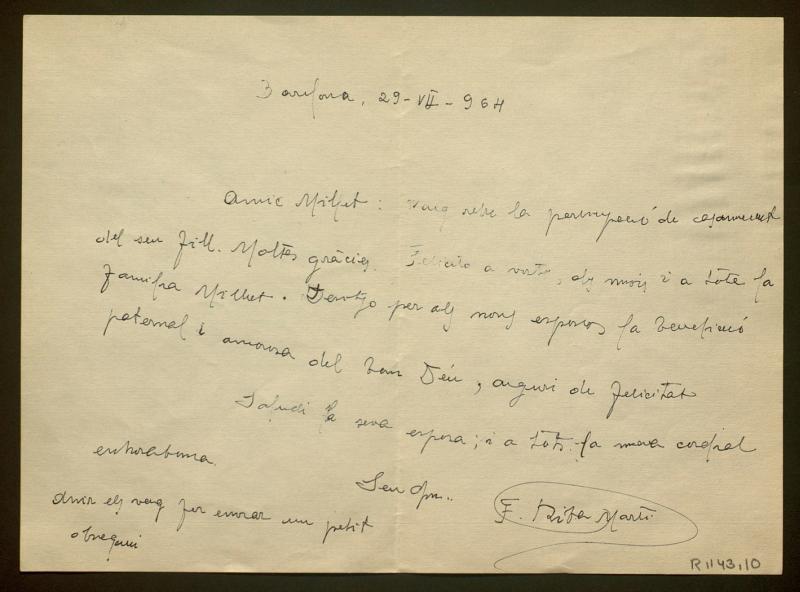 Barcelona, 29-VII-964
Amic Millet: Vaig rebre la participació de casament
del seu fill. Moltes gràcies. Felicito a vostè, als nois i a tota la
família Millet. Desitjo per als nous esposos la benedicció
paternal i amorosa del bon Déu, auguri de felicitat
Saludi la seva esposa; i a tots la meva cordial
enhorabona.
Seu afm..
F. Riba Martí
Ahir els vaig fer enviar un petit
obsequi
R.1143,10